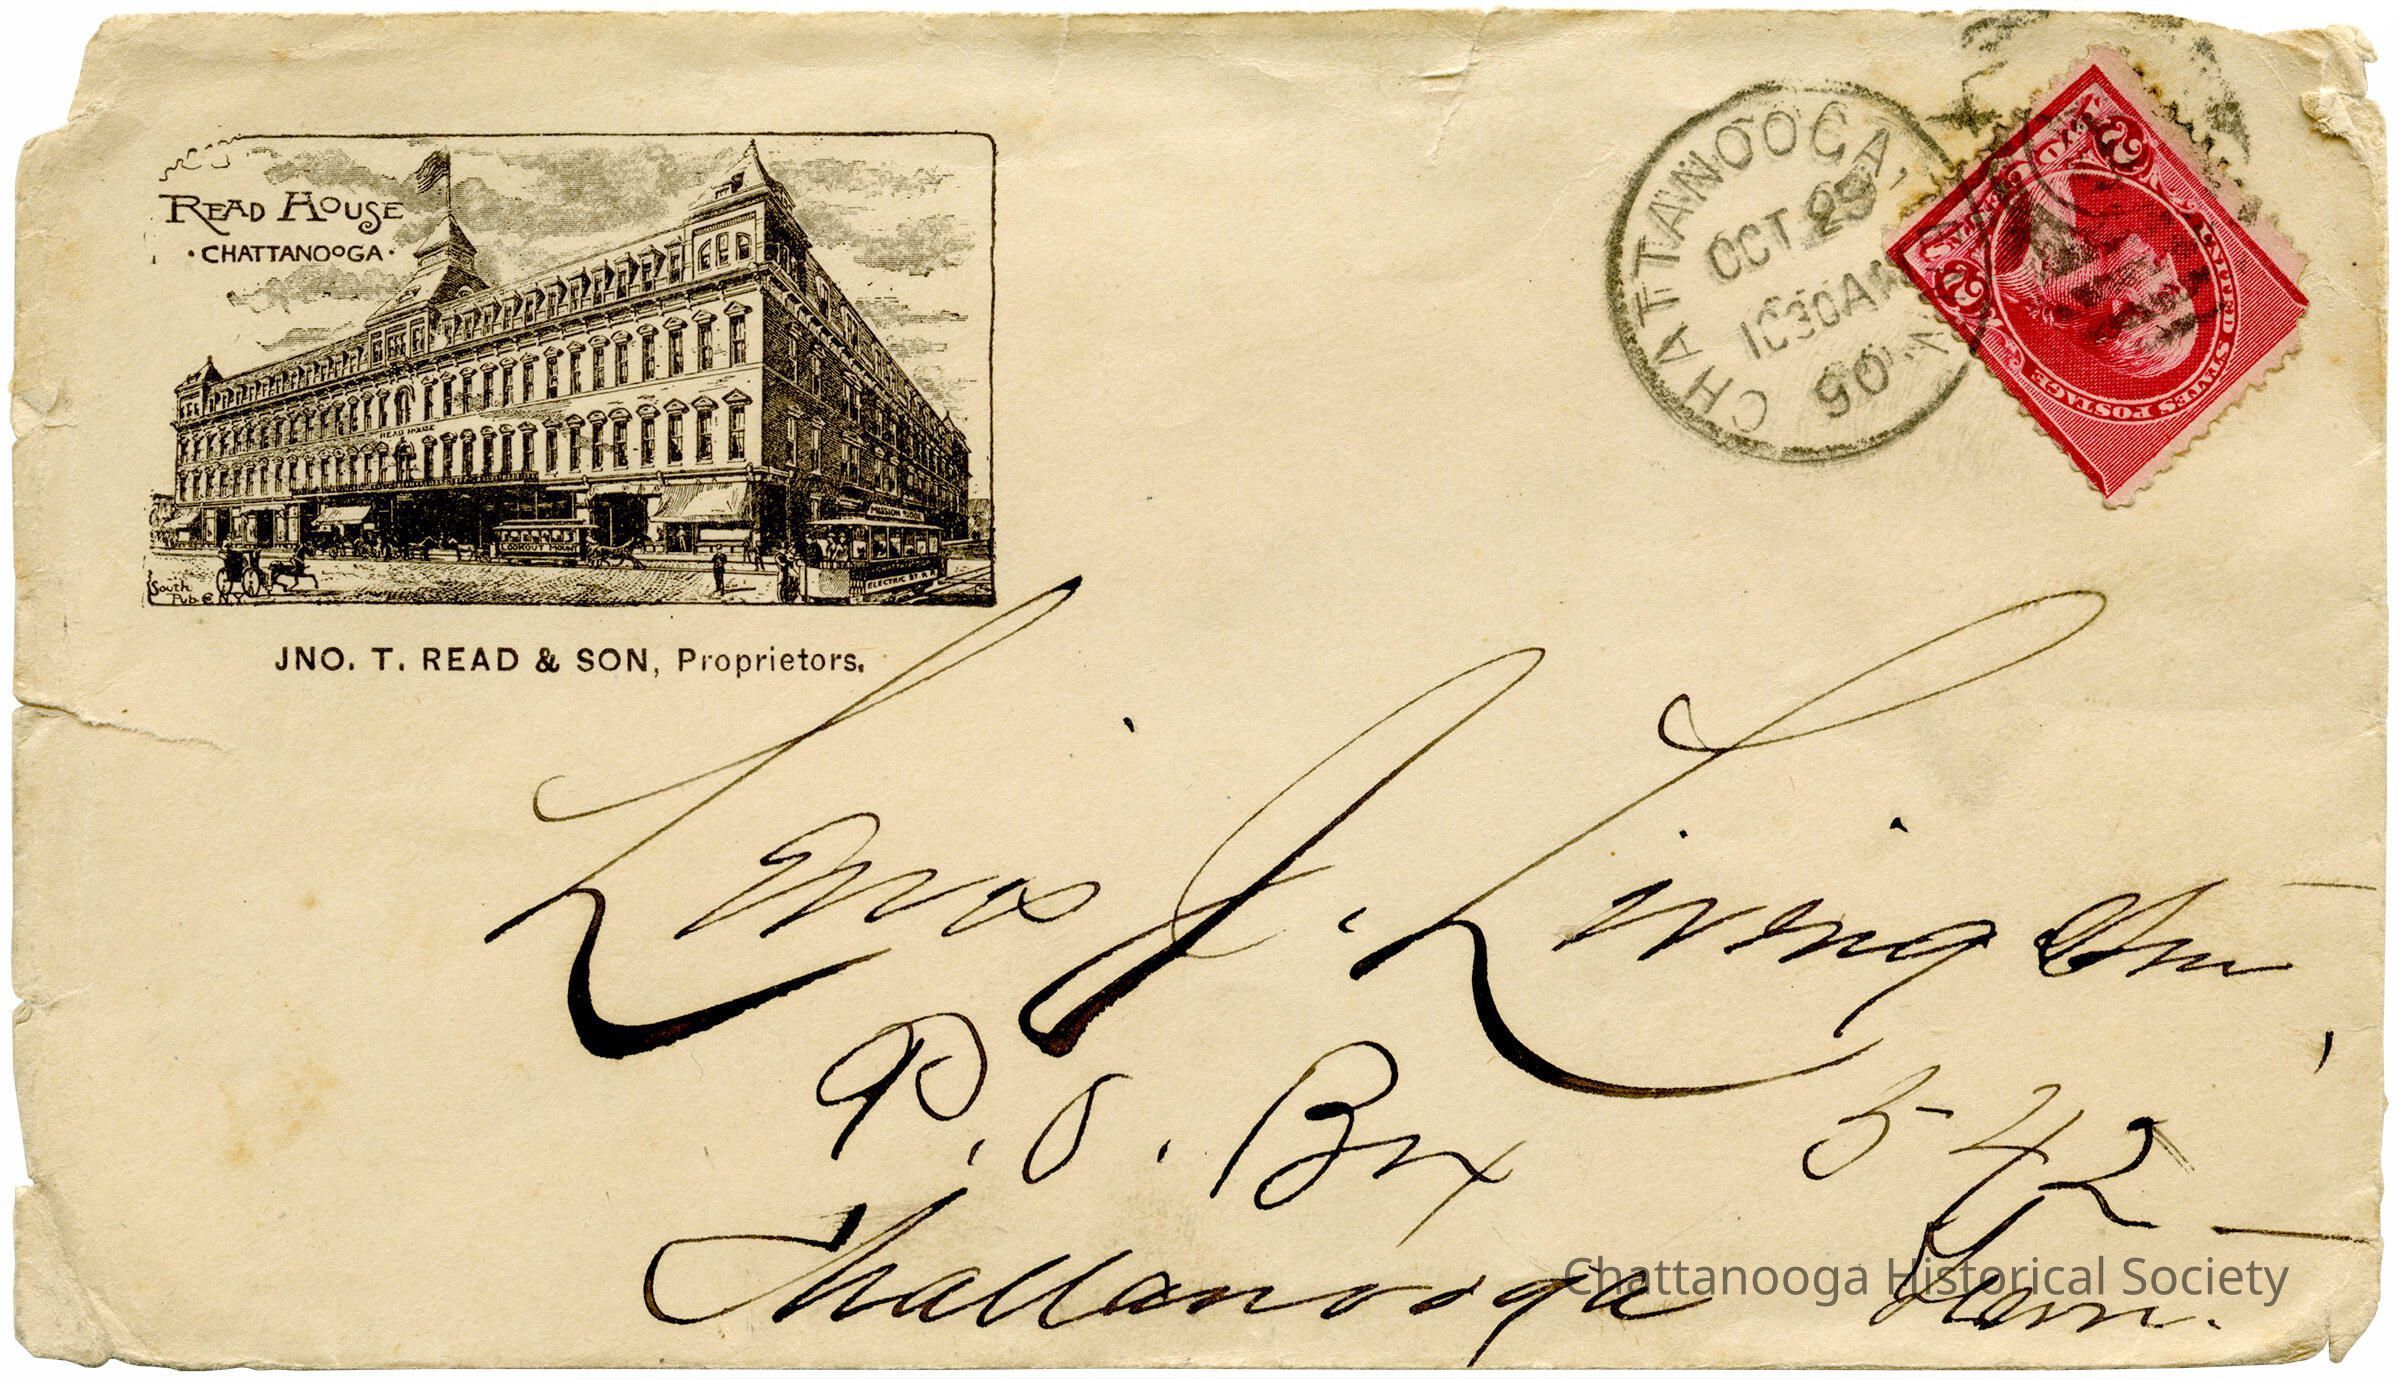 READ HOUSE
· CHATTANOOGA ·
READ HOUSE
LOOKOUT MOUNT
MISSION RIDGE
ELECTRIC ST. R. R.
South
Pub Co N.Y.
JNO. T. READ & SON, Proprietors.
CHATTANOOGA, TENN.
OCT 29
1030AM
90
2 2
UNITED STATES POSTAGE
Louis J. Livingston,
P. O. Box 542
Chattanooga Tenn.
Chattanooga Historical Society